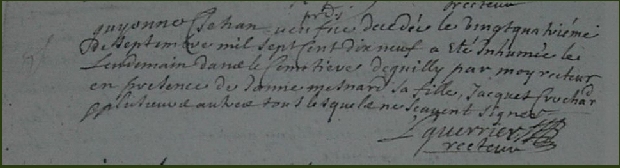 recteur
guyonne Jehan veufve decedée le vingtquatriéme
de septembre mil sept cent dix neuf a eté inhumée le
lendemain dans le cemetiere de quilly par moy recteur
en presence de Janne mesnard sa fille, Jacquet Crochard
plusieurs autres tous lesquels ne scavent signer
L guerrier
recteur